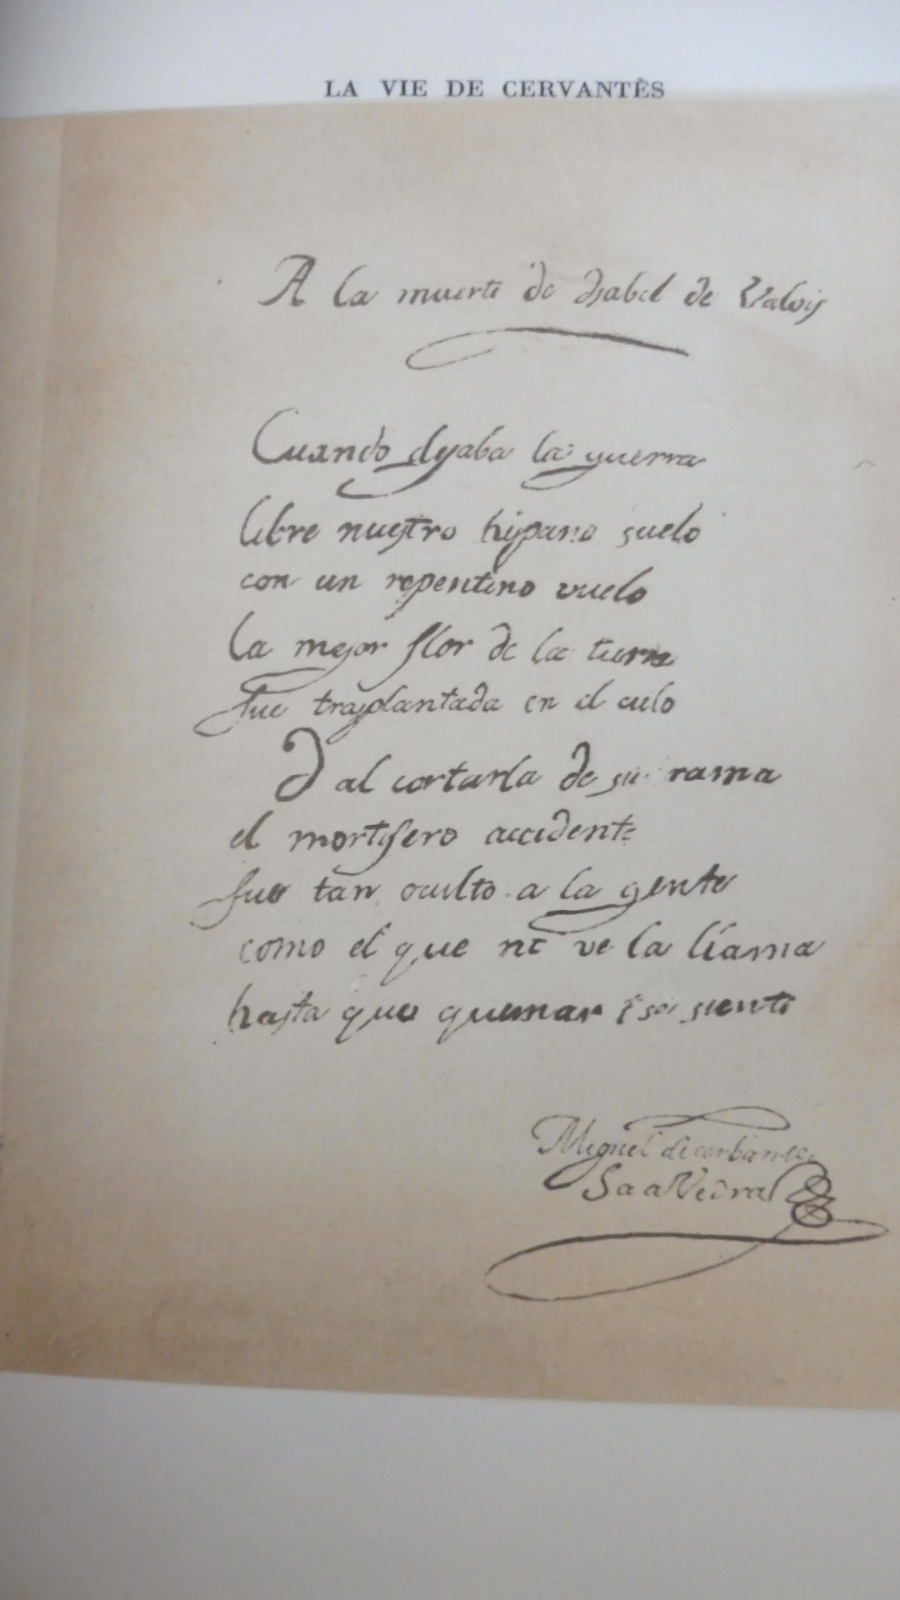 LA VIE DE CERVANTÈS
A la muerte de Isabel de Valois
Cuando dejaba la guerra
libre nuestro hispano suelo
con un repentino vuelo
la mejor flor de la tierra
fue trasplantada en el cielo
I al cortarla de su rama
el mortifero accidente
fue tan oculto a la gente
como el que no ve la llama
hasta que quemar se siente
Miguel de cerbantes
SaaVedra